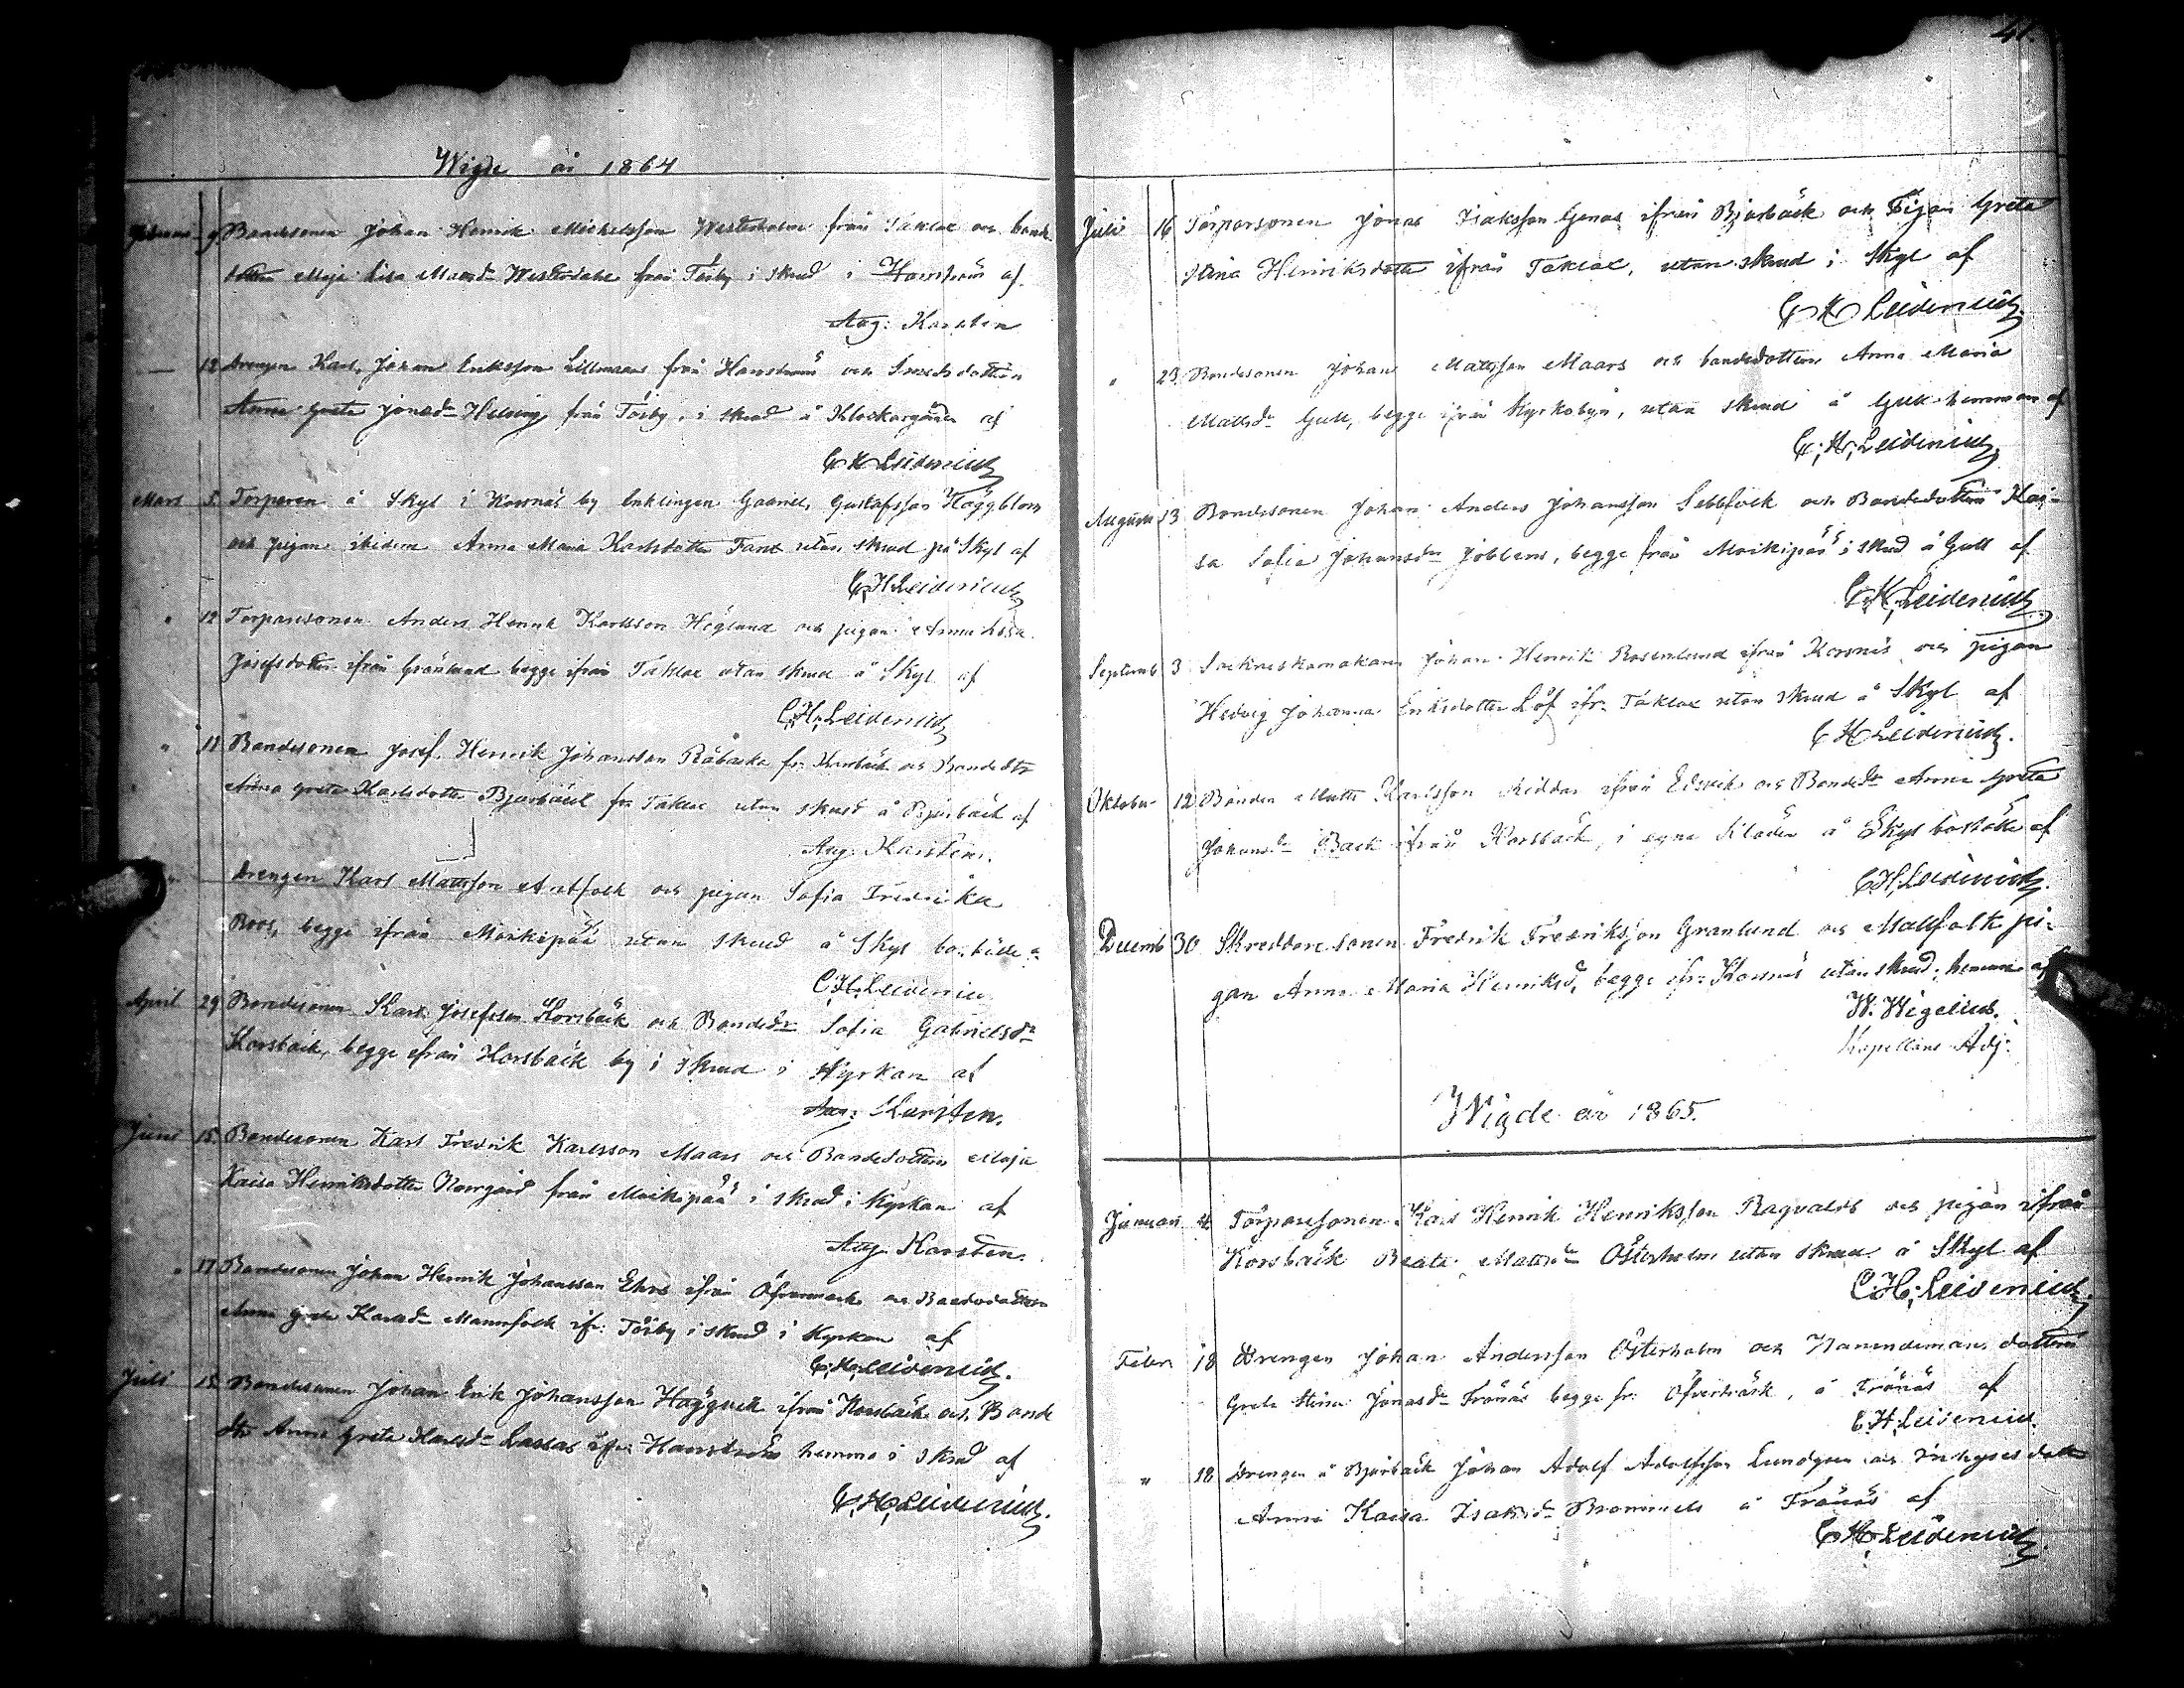 Wigde år 1864
9 Bondesonen Johan Henrik Michelsson Westerholm från Taklax och bonde
dottren Maja Lisa Matsd. från Töjby i skrud i Harrström af
Aug: Karsten
— 12 Drengen Karl Johan Eriksson Lillmaars från Harrström och Smedsdottren
Anna Greta Jonasd. från Töjby, i skrud å Klockargården af
C H Leidenius
Mars 5 Torparen å Skyt i Korsnäs by Enklingen Gabriel Gustafsson Häggblom
och pigan Anna Maria Karlsdotter Fant utan skrud på Skyt af
C.H. Leidenius
" 12 Torparesonen Anders Henrik Karlsson Höglund och pigan Anna Lovisa
Josefsdotter ifrån Grönlund begge ifrån Taklax utan skrud å Skyt af
C.H. Leidenius
" 18 Bondesonen Josef Henrik Johansson Råbacka fr. Korsbäck och Bondedtr
Anna Greta Karlsdotter Bjurbäck fr. Taklax utan skrud å Bjurbäck af
Aug. Karsten.
" Drengen Karl Mattsson Antfolk och pigan Sofia Fredrika
Roos, begge ifrån Moikipää utan skrud å Skyt boställe af
C.H. Leidenius
April 29 Bondesonen Karl Josefsson Korsbäck och Bondedr Sofia Gabrielsdr
Korsbäck, begge ifrån Korsbäck by i skrud i Kyrkan af
Aug: Karsten.
Juni 15 Bondesonen Karl Fredrik Karlsson Maars och Bondedottren Maja
Kaisa Henriksdotter Norrgård från Moikipää i skrud i Kyrkan af
Aug. Karsten.
" 17 Bondesonen Johan Henrik Johansson Ehrs ifrån Öfvermark och Bondedottren
Anna Greta Karlsdr Mannfolk ifr. Töjby i skrud i Kyrkan af
C.H. Leidenius.
Juli 15 Bondesonen Johan Erik Johansson Häggvik ifrån Korsbäck och Bonde
dtr Anna Greta Karlsdr Lassas ifrån Harrström hemma i skrud af
C.H. Leidenius.
41.
Juli 16 Torparsonen Jonas Isaksson Genas ifrån Bjurbäck och Pigan Greta
Stina Henriksdotter ifrån Taklax, utan skrud i Skyt af
C H Leidenius
" 23 Bondesonen Johan Mattsson Maars och bondedottren Anna Maria
Mattsdr Gull, begge ifrån Kyrkobyn, utan skrud å Gull hemman af
C.H. Leidenius
Augusti 13 Bondesonen Johan Anders Johansson Sebbfolk och Bondedottren Kaj-
sa Sofia Johansdr Joblens, begge från Moikipää i skrud å Gull af
C.H. Leidenius
Septemb 3 Sockneskomakaren Johan Henrik Rosenlund ifrån Korsnäs och pigan
Hedvig Johanna Eriksdotter Löf ifr. Taklax utan skrud å Skyt af
C H Leidenius.
Oktober 12 Bonden Matts Karlsson Riddar ifrån Edsvik och Bondedr Anna Greta
Johansdr Back ifrån Korsbäck, i egna kläder å Skyt boställe af
C.H. Leidenius.
Decemb 30 Skreddaresonen Fredrik Fredriksson Granlund och Mattfolk pi-
gan Anna Maria Henriksd, begge ifr: Korsnäs utan skrud, hemma af
W. Wigelius.
Kapellans Adj:
Wigde år 1865.
Januari 4 Torparesonen Karl Henrik Henriksson Ragvalds och pigan ifrån
Korsbäck Beata Mattsdr Österholm utan skrud å Skyt af
C.H. Leidenius
Febr. 18 Drengen Johan Andersson Österholm och Nämndemans dottren
Greta Stina Jonasdr Träsnäs begge fr: Öfverträsk, å Träsnäs af
C.H. Leidenius.
" 18 Drengen å Bjurbäck Johan Adolf Adolfsson Lundgren och Inhyses dottr
Anna Kaisa Isaksdr Brommels å Träsnäs af
C H Leidenius